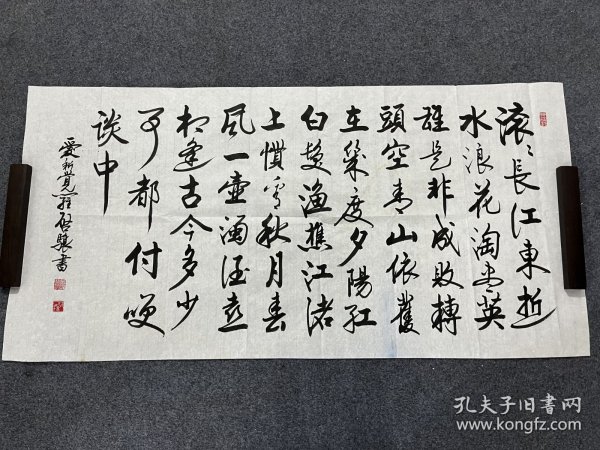 滚〻長江東逝
水浪花淘尽英
雄是非成敗轉
頭空青山依舊
在幾度夕陽紅
白髮漁樵江渚
上慣看秋月春
風一壶濁酒喜
相逢古今多少
事都付笑
談中
愛新覺羅啓驤書
孔夫子旧书网
www.kongfz.com